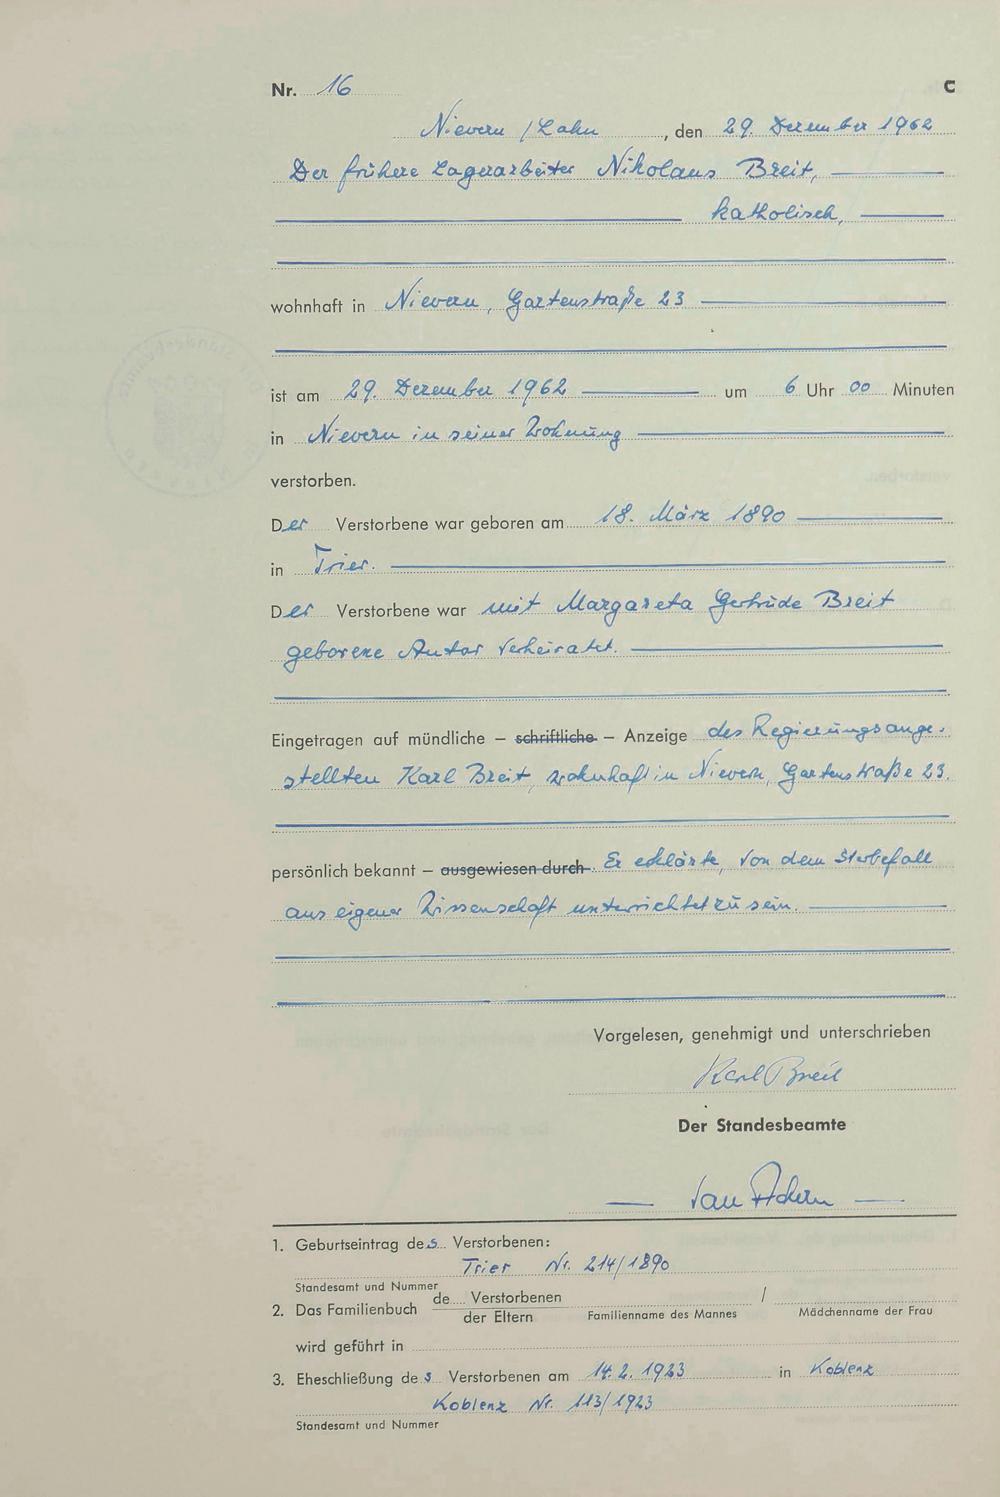 Nr. 16 C
Nievern / Lahn, den 29. Dezember 1962
Der frühere Lagerarbeiter Nikolaus Breit,
katholisch,
wohnhaft in Nievern, Gartenstraße 23
ist am 29. Dezember 1962 um 6 Uhr 00 Minuten
in Nievern in seiner Wohnung
verstorben.
Der Verstorbene war geboren am 18. März 1890
in Trier.
Der Verstorbene war mit Margareta Gertrude Breit
geborene Antor verheiratet.
Eingetragen auf mündliche – schriftliche – Anzeige des Regierungsange-
stellten Karl Breit, wohnhaft in Nievern, Gartenstraße 23.
persönlich bekannt – ausgewiesen durch. Er erklärte, von dem Sterbefall
aus eigener Wissenschaft unterrichtet zu sein.
Vorgelesen, genehmigt und unterschrieben
Karl Breit
Der Standesbeamte
1. Geburtseintrag des Verstorbenen:
Trier Nr. 214/1890
Standesamt und Nummer
2. Das Familienbuch de Verstorbenen /
der Eltern Familienname des Mannes Mädchenname der Frau
wird geführt in
3. Eheschließung des Verstorbenen am 14. 2. 1923 in Koblenz
Koblenz Nr. 113/1923
Standesamt und Nummer